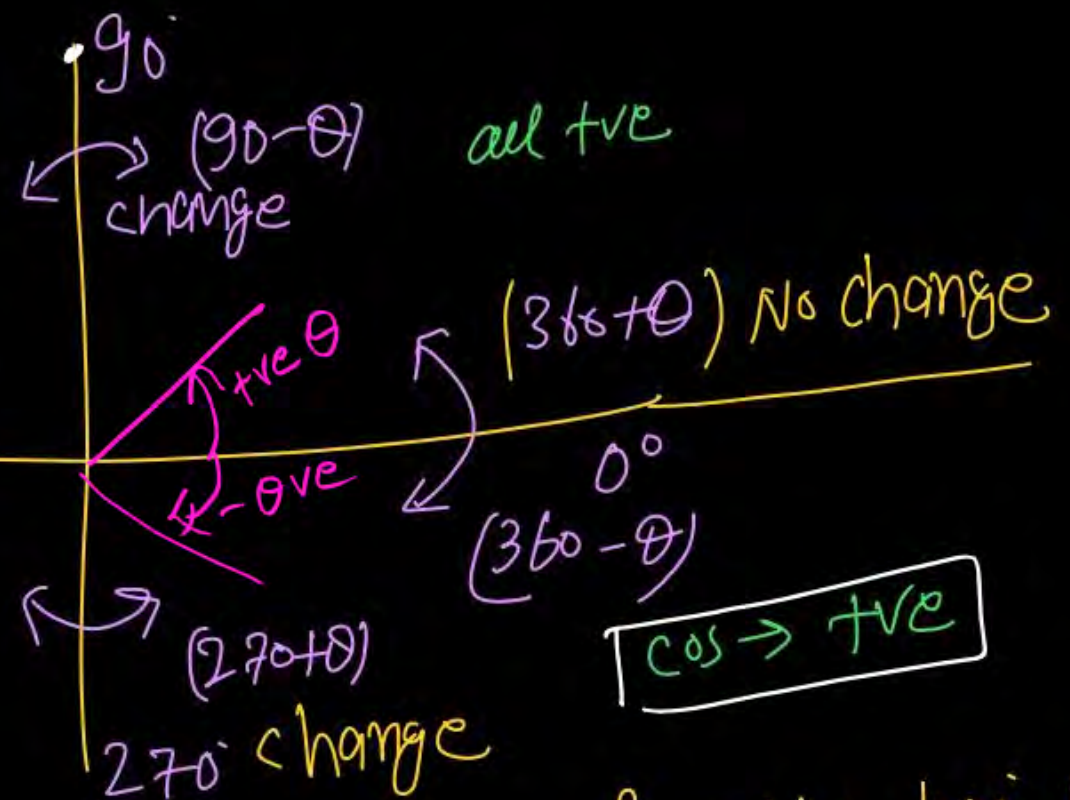 90°
(90-θ) all +ve
change
(360+θ) No change
+ve θ
0°
-θve
(360-θ)
cos → +ve
(270+θ)
270° change